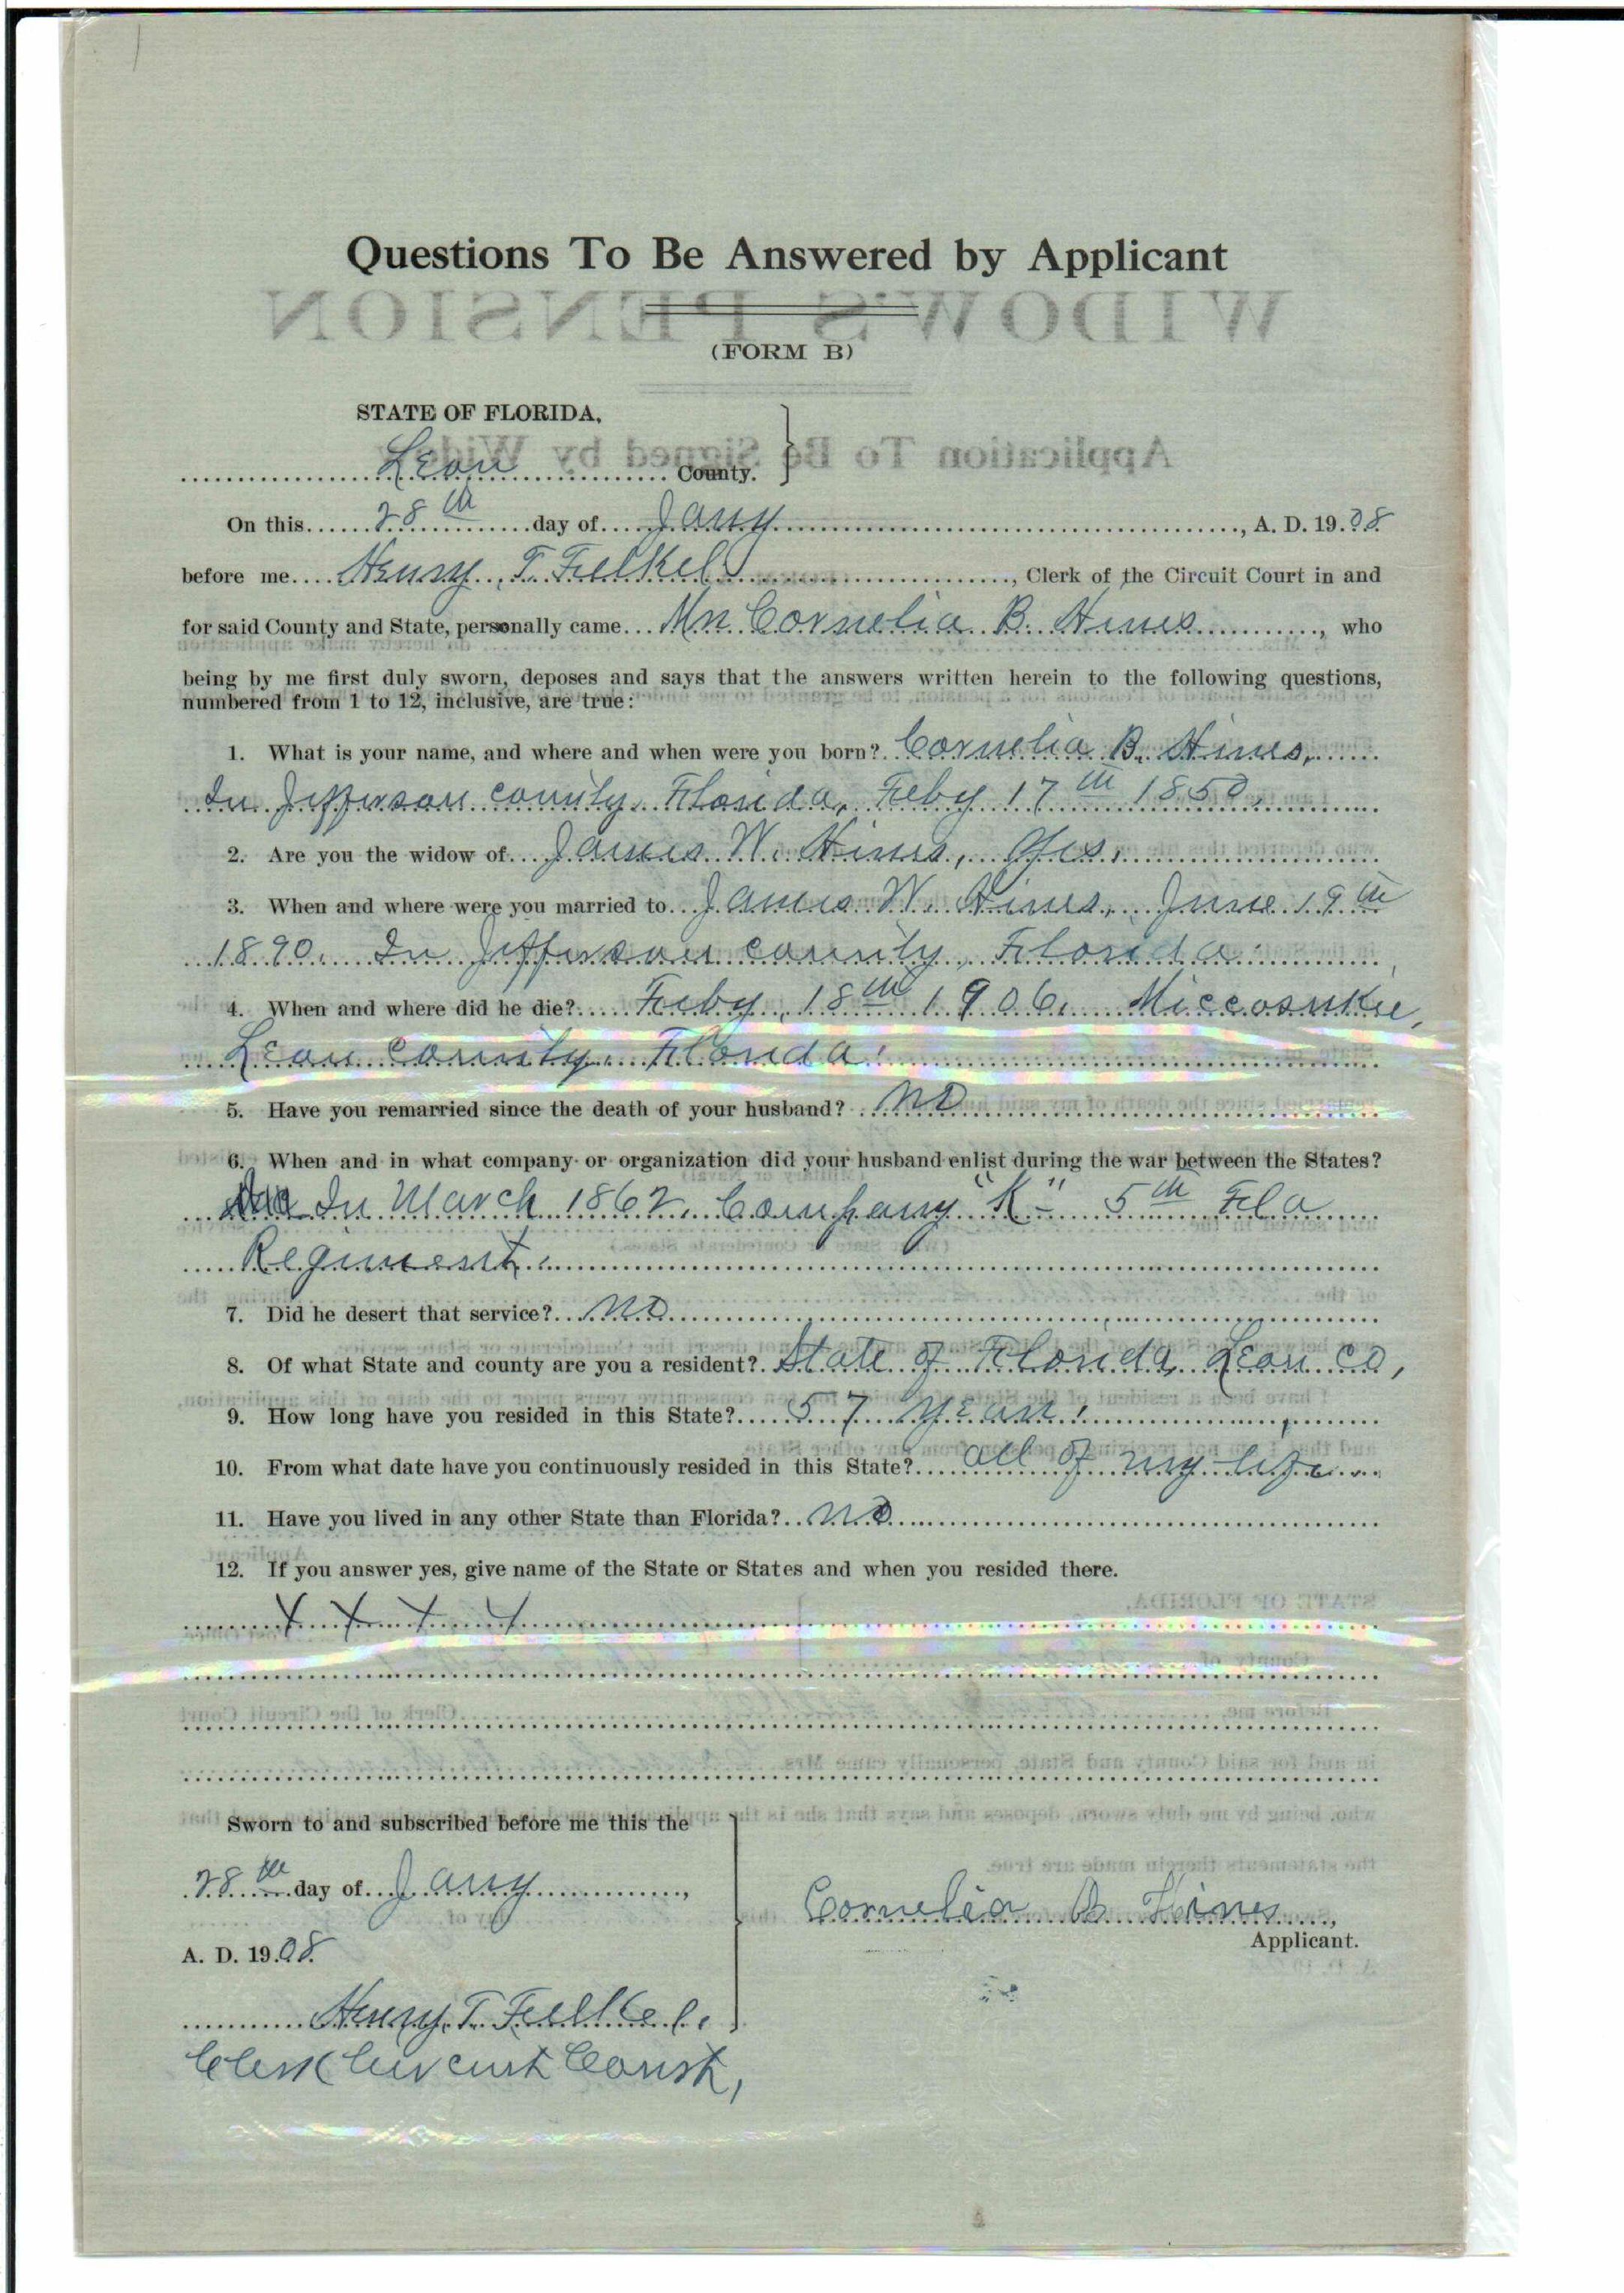 Questions To Be Answered by Applicant
WIDOW'S PENSION
(FORM B)
STATE OF FLORIDA.
Application To Be Signed by Widow
Leon County.
On this 28th day of Jany, A. D. 1908
before me Henry T Felkel, Clerk of the Circuit Court in and
for said County and State, personally came Mrs Cornelia B. Hines, who
being by me first duly sworn, deposes and says that the answers written herein to the following questions,
numbered from 1 to 12, inclusive, are true:
1. What is your name, and where and when were you born? Cornelia B. Hines,
In Jefferson county, Florida, Feby 17th 1850.
2. Are you the widow of James W. Hines, Yes.
3. When and where were you married to James W. Hines, June 19th
1890. In Jefferson county, Florida.
4. When and where did he die? Feby 18th 1906. Miccosukie,
Leon county, Florida.
5. Have you remarried since the death of your husband? no
6. When and in what company or organization did your husband enlist during the war between the States?
In March 1862, Company "K" - 5th Fla
Regiment.
7. Did he desert that service? no
8. Of what State and county are you a resident? State of Florida, Leon co,
9. How long have you resided in this State? 57 years.
10. From what date have you continuously resided in this State? all of my life
11. Have you lived in any other State than Florida? no
12. If you answer yes, give name of the State or States and when you resided there.
X X X X
STATE OF FLORIDA.
County of
Before me, Clerk of the Circuit Court
in and for said County and State, personally came Mrs.
who, being by me duly sworn, deposes and says that she is the applicant
Sworn to and subscribed before me this the
the statements therein made are true.
28th day of Jany,
Cornelia B Hines,
Applicant.
A. D. 1908.
Henry T. Felkel.
Clerk Circuit Court,